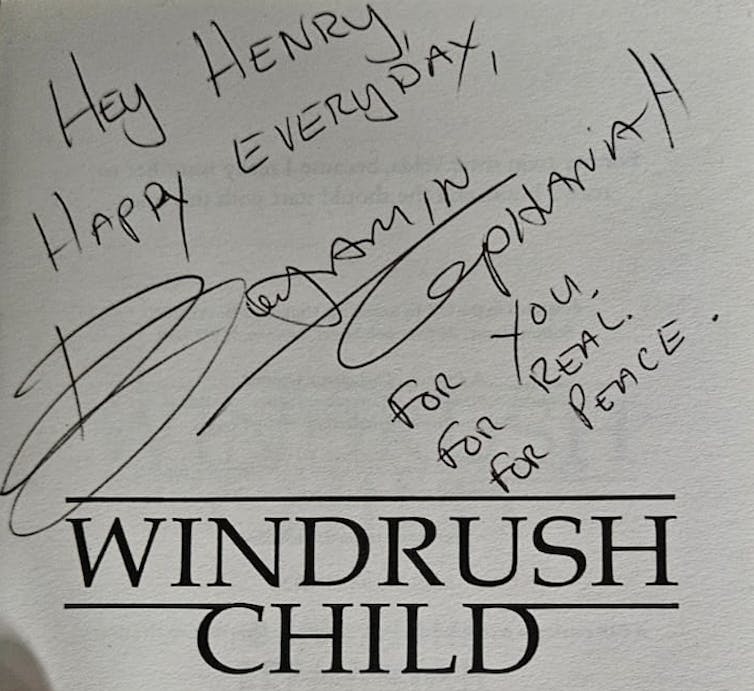 HEY HENRY,
HAPPY EVERYDAY,
BENJAMIN ZEPHANIAH
FOR YOU.
FOR REAL.
FOR PEACE.
WINDRUSH
CHILD